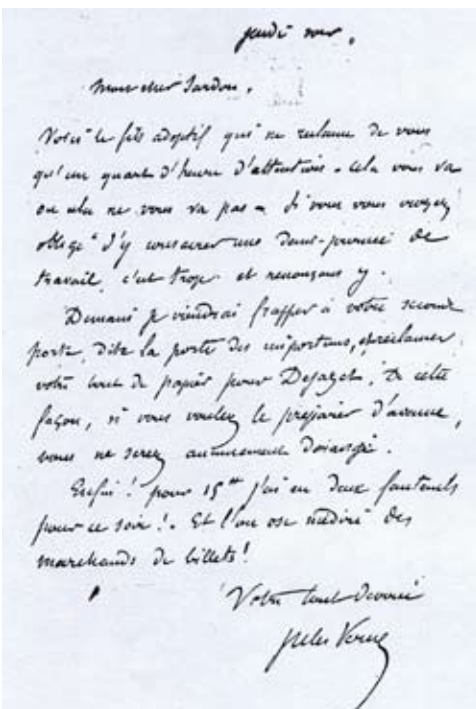 jeudi soir.
Mon cher Sardou,
Voici le fils adoptif qui ne réclame de vous
qu'un quart d'heure d'attention. Cela vous va
ou cela ne vous va pas – Si vous vous croyez
obligé d'y consacrer une demi-journée de
travail, c'est trop et renonçons y.
Demain je viendrai frapper à votre seconde
porte, dite la porte des importuns, et réclamer
votre bout de papier pour Dejazet. De cette
façon, si vous voulez le préparer d'avance,
vous ne serez aucunement dérangé.
Enfin! pour 15 j'ai eu deux fauteuils
pour ce soir!. Et l'on ose médire des
marchands de billets!
Votre tout dévoué
Jules Verne